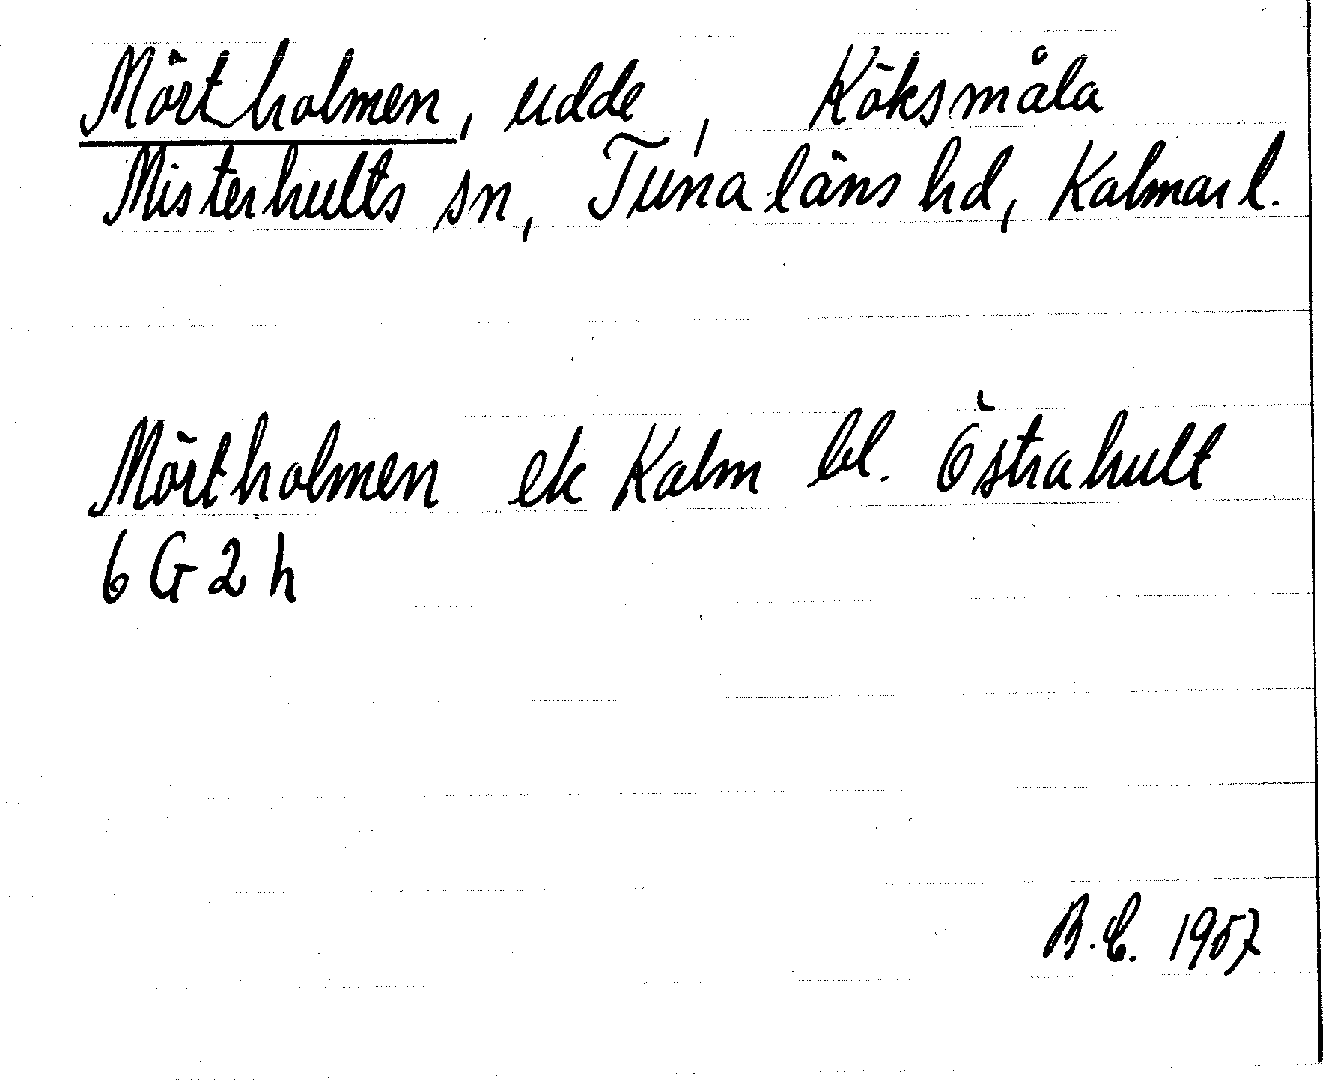 Mörtholmen, udde, Köksmåla
Misterhults sn, Tunaläns hd, Kalmar l.
Mörtholmen ek Kalm bl. Östrahult
6G2h
B.E. 1957